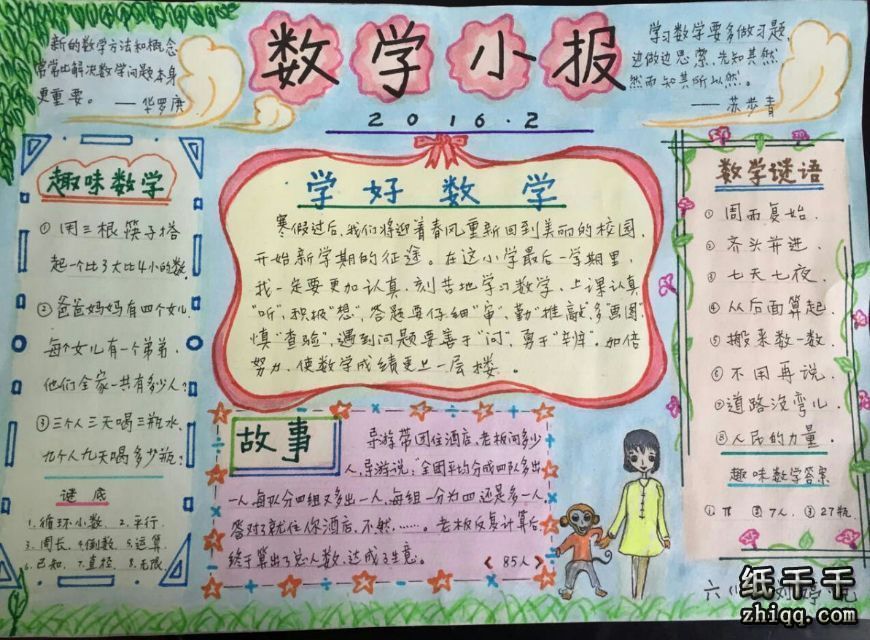 新的数学方法和概念
常常比解决数学问题本身
更重要。 ——华罗庚
数学小报
2016.2
学习数学要多做习题,
边做边思索。先知其然,
然而知其所以然。
——苏步青
趣味数学
①用三根筷子搭
起一个比3大比4小的数。
②爸爸妈妈有四个女儿,
每个女儿有一个弟弟,
他们全家一共有多少人?
③三个人三天喝三瓶水,
九个人九天喝多少瓶?
谜底
1.循环小数、2.平行.
3.周长、4.倒数、5.运算
6.已知、7.直径、8.无限
学好数学
寒假过后,我们将迎着春风重新回到美丽的校园,
开始新学期的征途。在这小学最后一学期里,
我一定要更加认真、刻苦地学习数学,上课认真
"听",积极"想",答题要仔细"审",勤"推敲",多"画图"
慎"查验",遇到问题要善于"问",勇于"辨"。加倍
努力,使数学成绩更上一层楼。
故事
导游带团住酒店,老板问多少
人,导游说:全团平均分成四队多出
一人,每队分四组又多出一人,每组一分为四还是多一人,
答对了就住你酒店,不然,……。老板反复计算后,
终于算出了总人数,达成了生意。
《85人》
数学谜语
①周而复始.
②齐头并进.
③七天七夜.
④从后面算起.
⑤搬来数一数.
⑥不用再说.
⑦道路没弯儿.
⑧人民的力量.
趣味数学答案
①π ②7人. ③27瓶.
六
纸干干
zhiqq.com